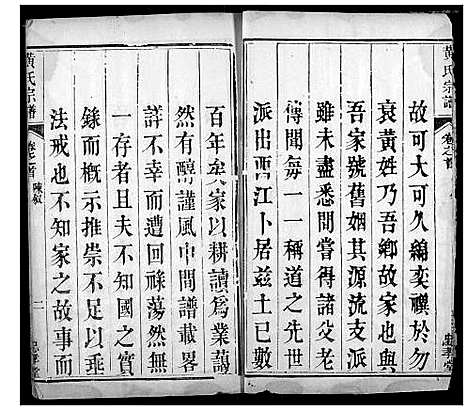 黃氏宗譜
卷之首
忠孝堂
故可大可久綿奕禩於勿
衰黃姓乃吾鄉故家也與
吾家號舊姻其源流支派
雖未盡悉嘗得諸父老
傳聞每一一稱道之先世
派出西江卜居茲土已數
百年矣家以耕讀爲業藹
然有醇謹風中間譜載畧
詳不幸而遭回祿蕩然無
一存者且夫不知國之寶
錄而概示推崇不足以垂
法戒也不知家之故事而
黃氏宗譜
卷之首
陳叙
二
忠孝堂